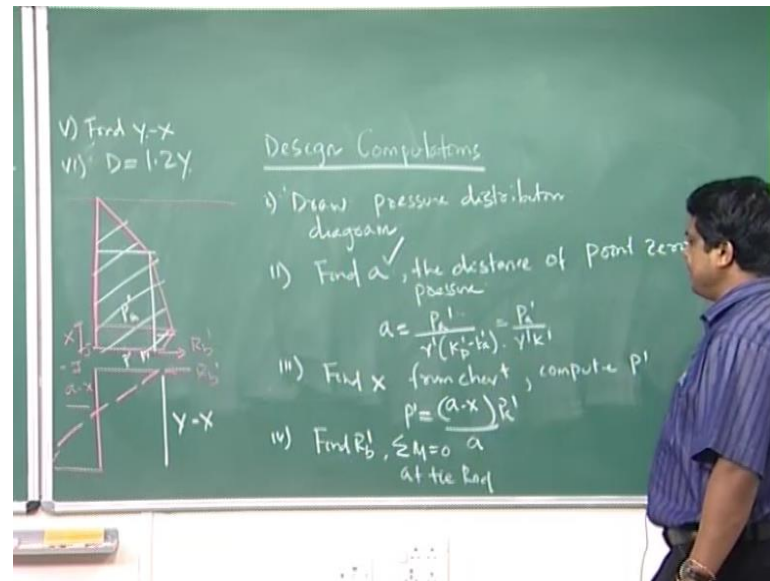 V) Find Y-X
VI) D = 1.2Y.
Design Computations
i) Draw pressure distribution
diagram
ii) Find a ✓, the distance of point zero
pressure.
a = Pa' / γ'(Kp'-Ka') = Pa' / γ'K'
iii) Find x from chart, compute P'
P' = (a-x) Pa' / a
iv) Find Rb', ΣM=0
at tie Rod
Pa'
X
b
P'
Rb'
Rb'
a-x
Y-X